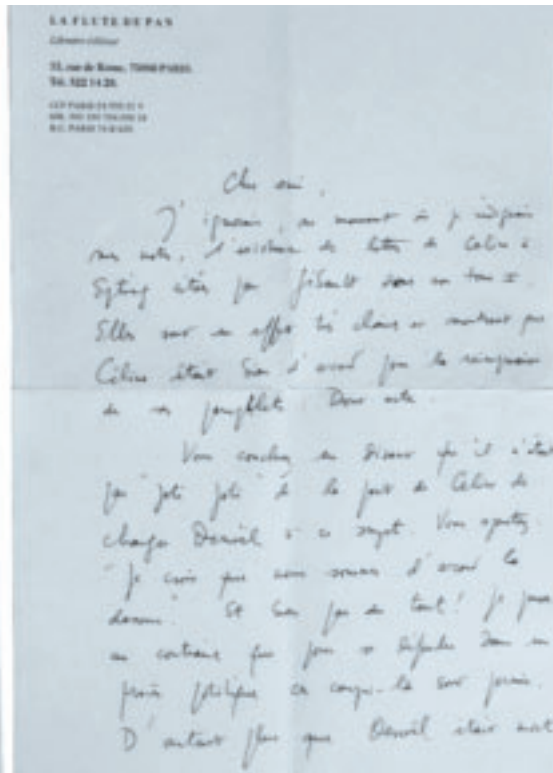 LA FLUTE DE PAN
Libraire-éditeur
, rue de Rome, 75008 PARIS
Tél. 522 14 20.
Cher ami,
J'ignorais, au moment où je rédigeais
ma note, l'existence de lettres de Céline à
citées par Gibault dans son tome
Elles sont en effet très claires et montrent que
Céline était bien d'accord pour la
de ses pamphlets. Donc acte.
Vous concluez en disant qu'il n'était
pas "joli joli" de la part de Céline de
charger Denoël à ce sujet. Vous ajoutez
"je crois que nous sommes d'accord là
dessus". Et bien pas du tout! Je pense
au contraire que pour se défendre dans un
procès politique ce coup-là
D'autant plus que Denoël était mort